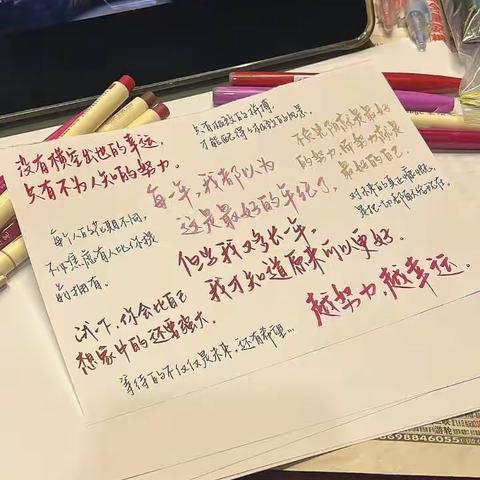 没有横空出世的幸运，
只有不为人知的努力。
只有极致的拼搏，
才能配得上极致的风景。
结果
最好
的努力
最好的自己
每一年，我都以为
这是最好的年纪了，
但当我又多长一年，
我才知道原来可以更好。
每个人的花期不同，
不必焦虑有人比你提
前拥有。
对未来的真正慷慨，
是把一切都献给现在。
试一下，你会比自己
想象中的还要强大。
越努力，越幸运。
等待的不仅仅是未来，还有希望…
8698846055